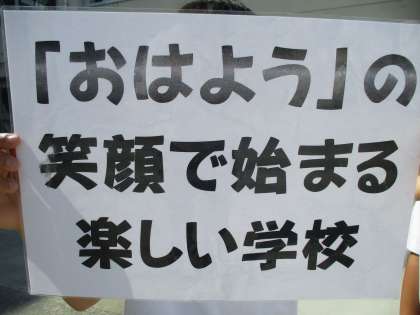 「おはよう」の
笑顔で始まる
楽しい学校